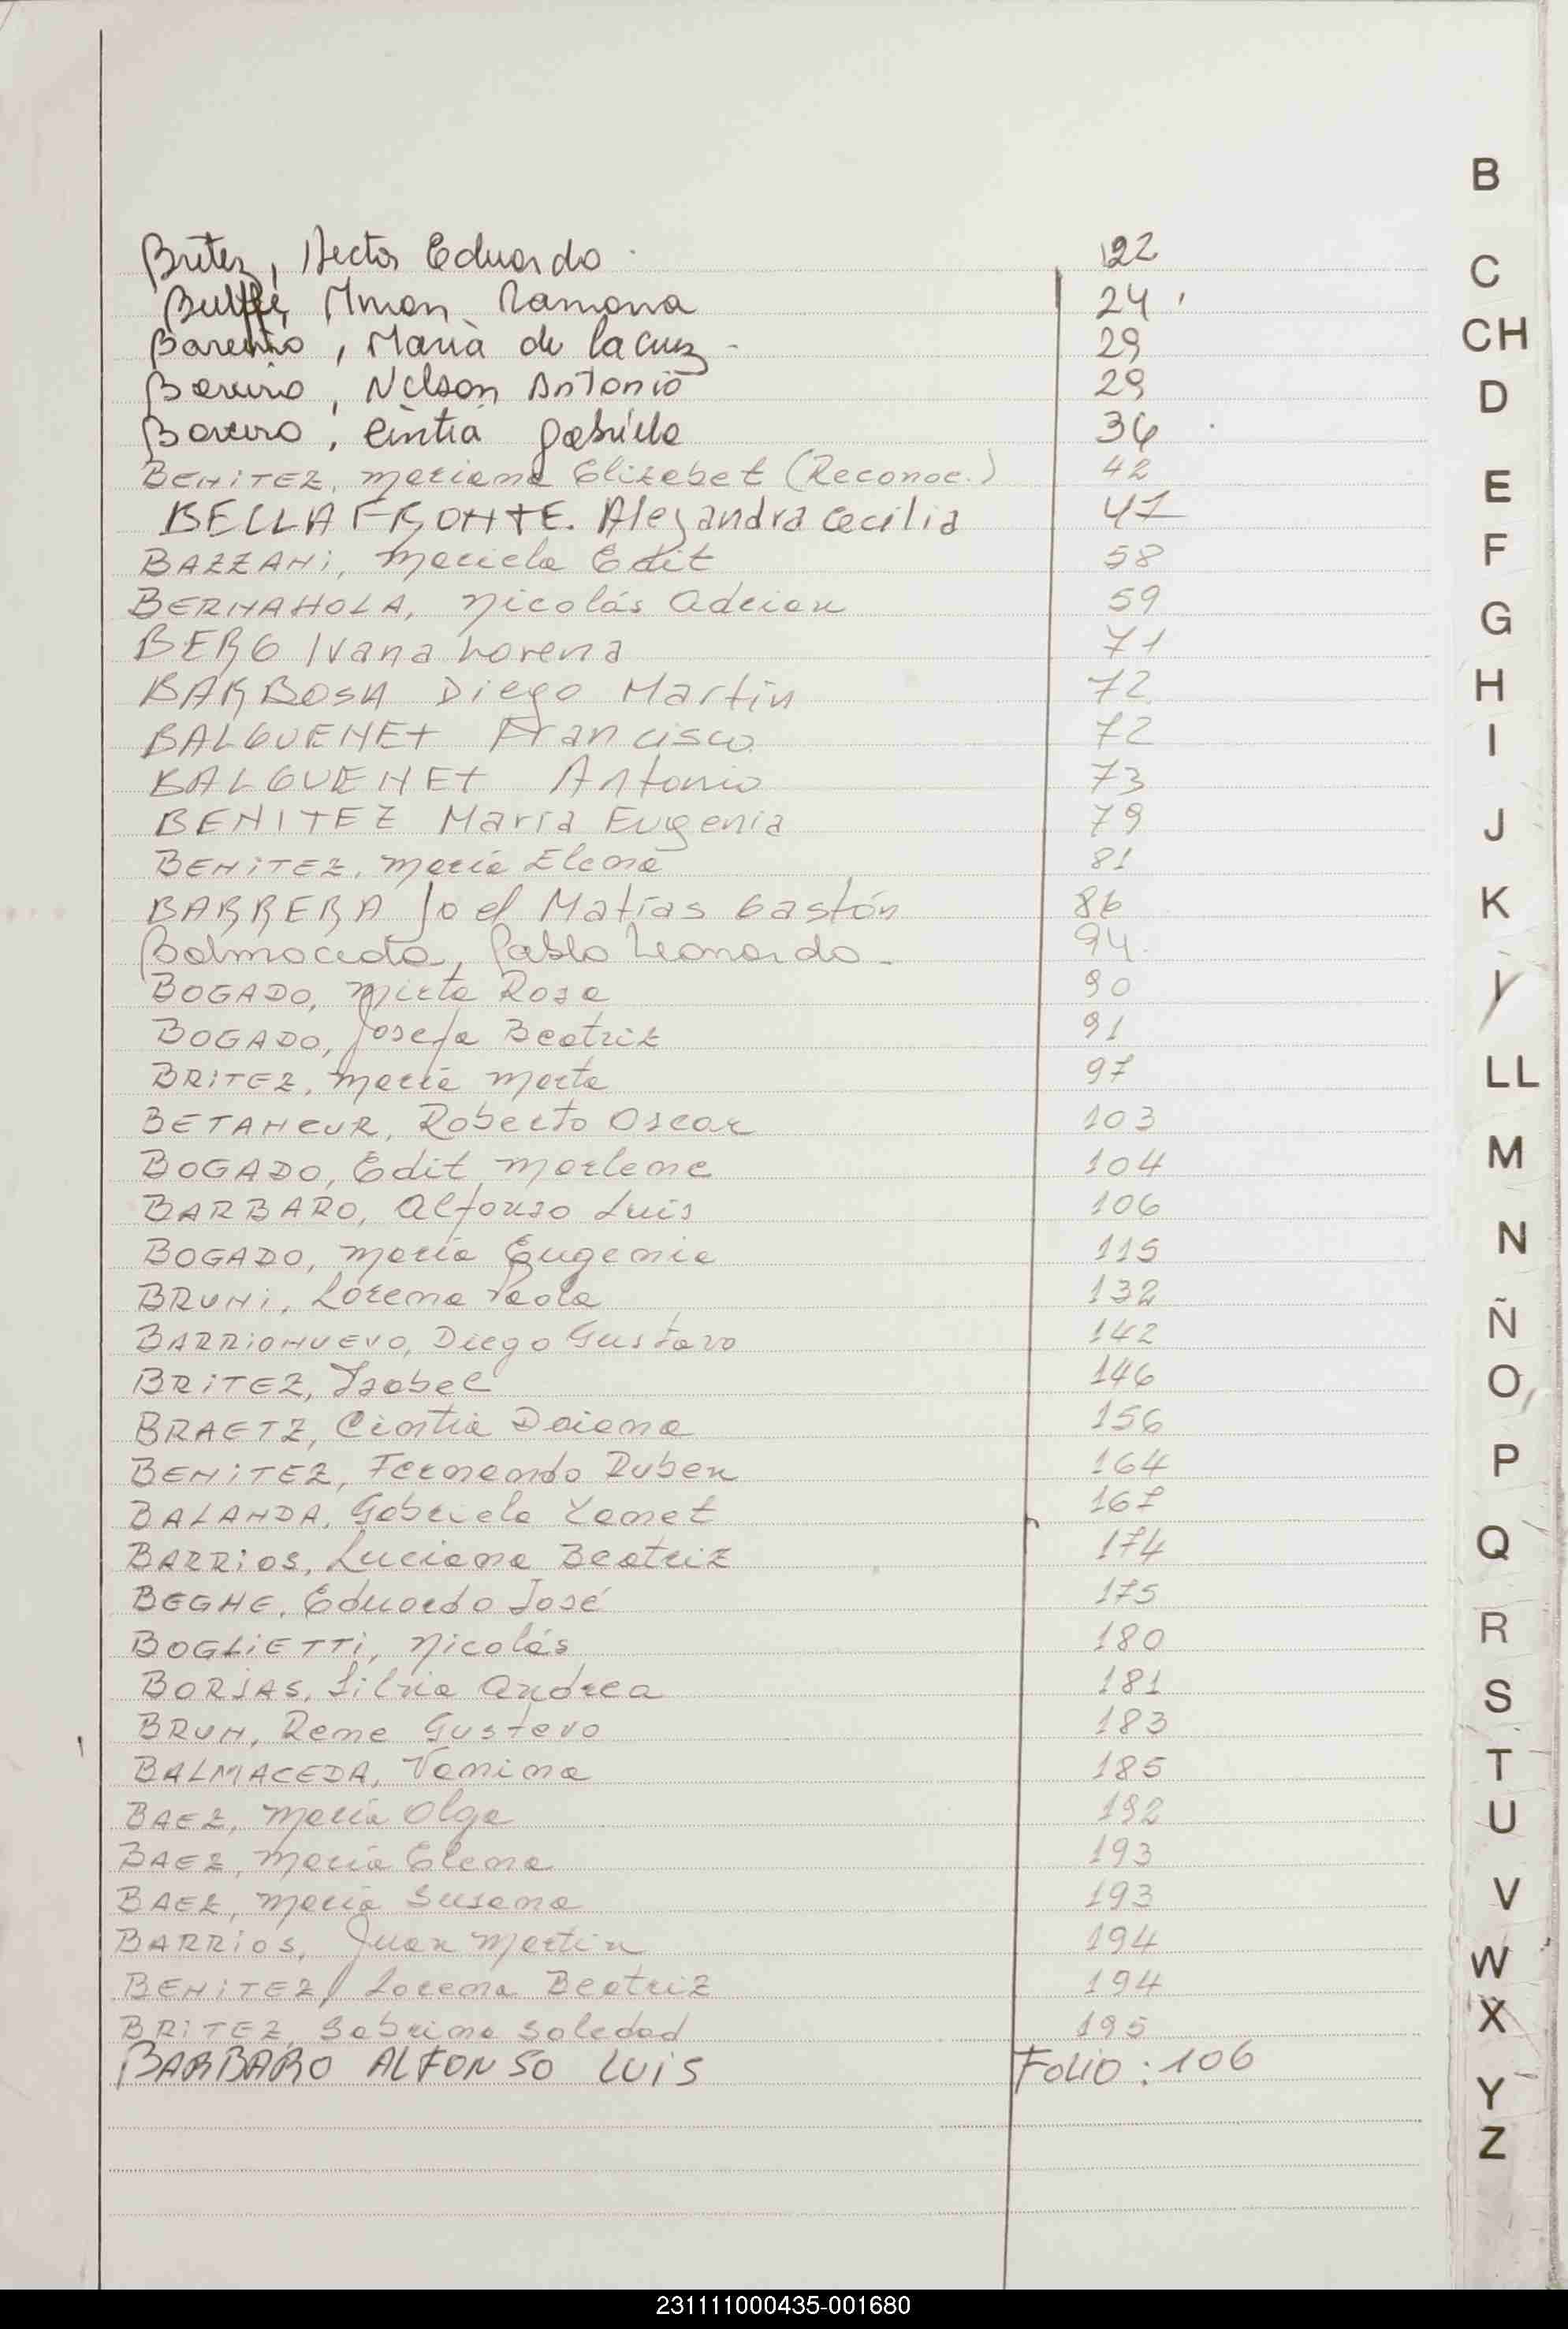 Britez, Hector Eduardo 122
Ramona 24
Bareiro, Maria de la Cruz 29
Bareiro, Nelson Antonio 29
Bareiro, Cintia Gabriela 36
BENITEZ, Mariana Elizabet (Reconoc.) 42
BELLAFRONTE. Alejandra Cecilia 47
BAZZANi, Mariela Edit 58
BERNAHOLA, Nicolás Adrian 59
BERG Ivana Lorena 71
BARBOSA Diego Martin 72
BALGUENET Francisco 72
BALGUENET Antonio 73
BENITEZ María Eugenia 79
BENiTEZ, María Elena 81
BARRERA Joel Matías Gastón 86
Balmaceda, Pablo Leonardo 94
BOGADO, Mirta Rosa 90
BOGADO, Josefa Beatriz 91
BRiTEZ, María Marta 97
BETANCUR, Roberto Oscar 103
BOGADO, Edit Marlene 104
BARBARO, Alfonso Luis 106
BOGADO, María Eugenia 115
BRUNi, Lorena Paola 132
BARRiONUEVO, Diego Gustavo 142
BRiTEZ, Isabel 146
BRAETZ, Cintia Daiana 156
BENiTEZ, Fernando Ruben 164
BALANDA, Gabriela Yanet 167
BARRiOS, Luciana Beatriz 174
BEGHE, Eduardo José 175
BOGLiETTi, Nicolás 180
BORJAS, Silvia Andrea 181
BRUN, Rene Gustavo 183
BALMACEDA, Vanina 185
BAEZ, María Olga 192
BAEZ, María Elena 193
BAEZ, María Susana 193
BARRiOS, Juan Martin 194
BENiTEZ, Lorena Beatriz 194
BRiTEZ, Sabrina Soledad 195
BARBARO ALFONSO LUIS FOLIO: 106
B
C
CH
D
E
F
G
H
I
J
K
L
LL
M
N
Ñ
O
P
Q
R
S
T
U
V
W
X
Y
Z
231111000435-001680